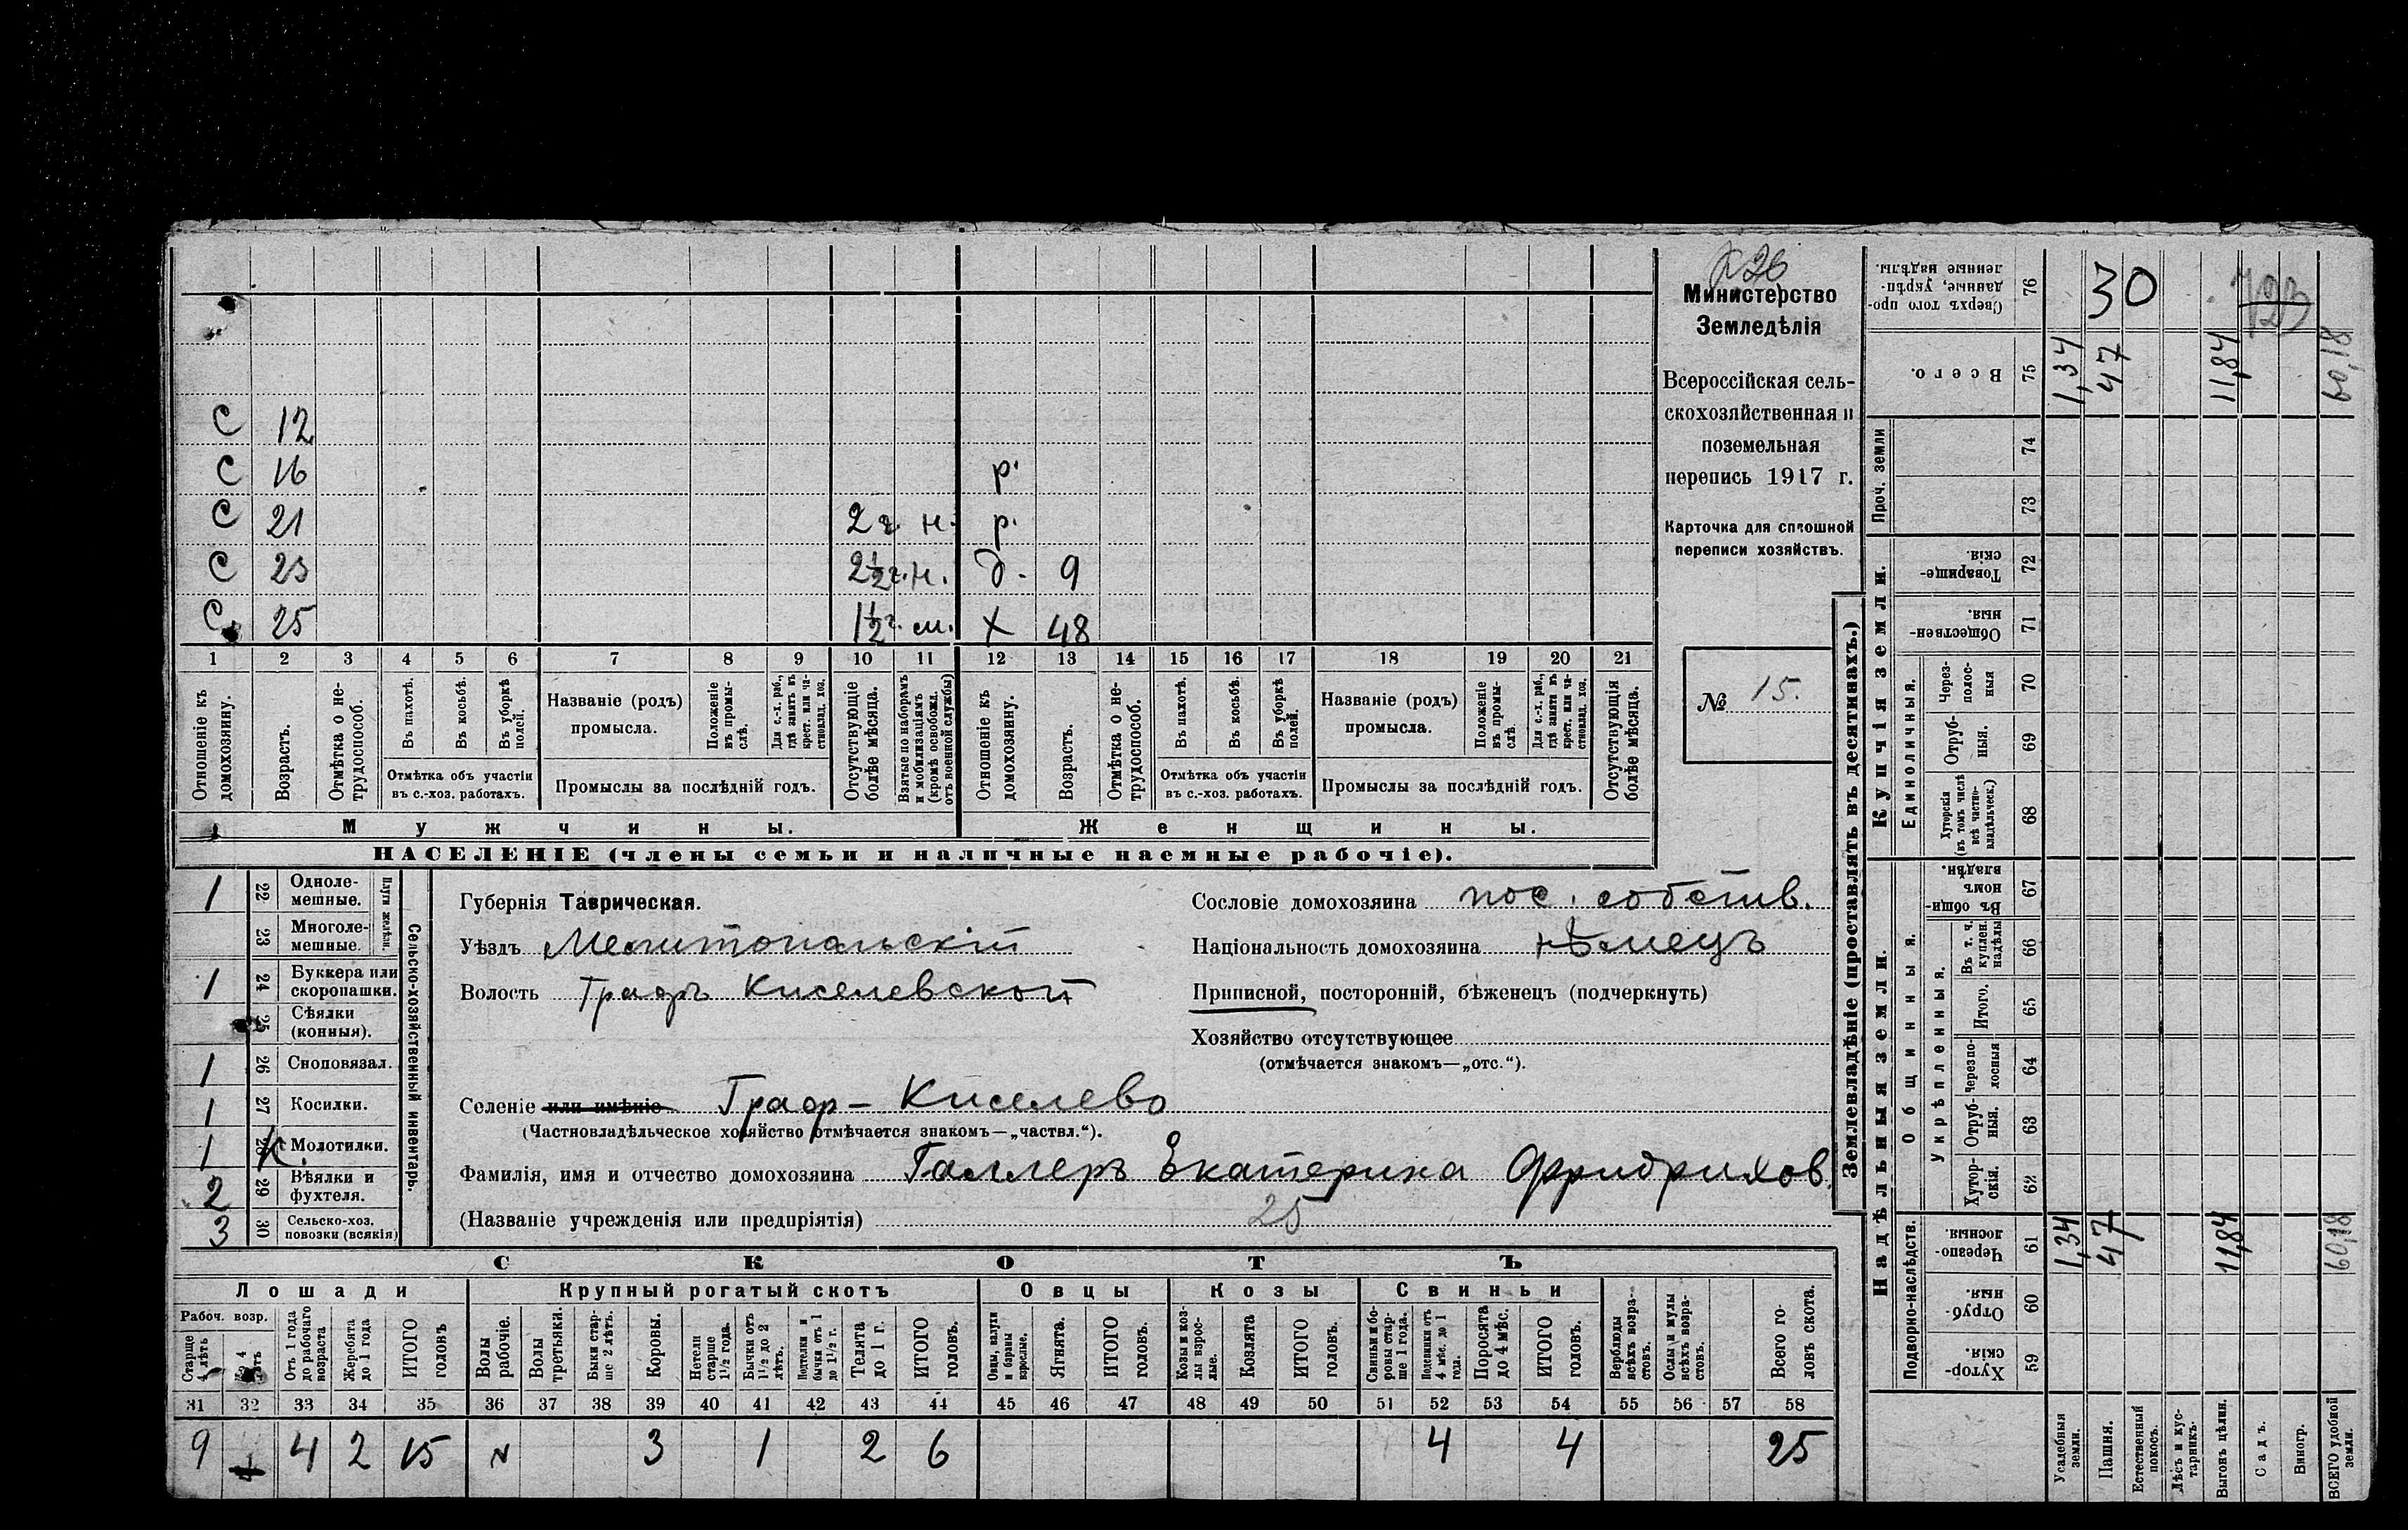 № 26
Министерство
Земледѣлія
Всероссійская сель-
скохозяйственная и
поземельная
перепись 1917 г.
Карточка для сплошной
переписи хозяйствъ.
№ 15.
С 12
С 16 р.
С 21 2 г. н. р.
С 23 2½ г. н. д. 9
С 25 1½ г. м. Х 48
1 2 3 4 5 6 7 8 9 10 11 12 13 14 15 16 17 18 19 20 21
Отношеніе къ домохозяину.
Возрастъ.
Отмѣтка о не-трудоспособ.
Въ пахотѣ.
Въ косьбѣ.
Въ уборкѣ полей.
Отмѣтка объ участіи въ с.-хоз. работахъ.
Названіе (родъ) промысла.
Положеніе въ промы-слѣ.
Для с.-х. раб., гдѣ занятъ въ крест. или ча-стновлад. хоз.
Промыслы за послѣдній годъ.
Отсутствующіе болѣе мѣсяца.
Взятые по наборамъ и мобилизаціямъ (кромѣ освобожд. отъ военной службы)
Отношеніе къ домохозяину.
Возрастъ.
Отмѣтка о не-трудоспособ.
Въ пахотѣ.
Въ косьбѣ.
Въ уборкѣ полей.
Отмѣтка объ участіи въ с.-хоз. работахъ.
Названіе (родъ) промысла.
Положеніе въ промы-слѣ.
Для с.-х. раб., гдѣ занятъ въ крест. или ча-стновлад. хоз.
Промыслы за послѣдній годъ.
Отсутствующія болѣе мѣсяца.
Мужчины. Женщины.
НАСЕЛЕНІЕ (члены семьи и наличные наемные рабочіе).
Сельско-хозяйственный инвентарь.
Плуги желѣзн.
1 22 Одноле-мешные.
23 Многоле-мешные.
1 24 Буккера или скоропашки.
25 Сѣялки (конныя).
1 26 Сноповязал.
1 27 Косилки.
1 28 к. Молотилки.
2 29 Вѣялки и фухтеля.
3 30 Сельско-хоз. повозки (всякія)
Губернія Таврическая.
Уѣздъ Мелитопольскій
Волость Графъ Киселевской
Сословіе домохозяина пос. собств.
Національность домохозяина нѣмецъ
Приписной, посторонній, бѣженецъ (подчеркнуть)
Хозяйство отсутствующее
(отмѣчается знакомъ—„отс.“).
Селеніе или имѣніе Граф-Киселево
(Частновладѣльческое хозяйство отмѣчается знакомъ—„частвл.“).
Фамилія, имя и отчество домохозяина Галлеръ Екатерина Фридрихов.
(Названіе учрежденія или предпріятія) 25
СКОТЪ
Лошади Крупный рогатый скотъ Овцы Козы Свиньи
Рабоч. возр.
Старше 4 лѣтъ
До 4 лѣтъ
Отъ 1 года до рабочаго возраста
Жеребята до 1 года
ИТОГО головъ
Волы рабочіе.
Волы третьяки.
Быки стар-ше 2 лѣтъ.
Коровы.
Нетели старше 1½ года.
Бычки отъ 1½ до 2 лѣтъ.
Подтелки и бычки отъ 1 до 1½ г.
Телята до 1 г.
ИТОГО головъ.
Овцы, валухи и бараны взрослые.
Ягнята.
ИТОГО головъ.
Козы и коз-лы взрос-лые.
Козлята
ИТОГО головъ.
Свиньи и бо-ровы стар-ше 1 года.
Подсвинки отъ 4 мѣс. до 1 года.
Поросята до 4 мѣс.
ИТОГО головъ.
Верблюды всѣхъ возра-стовъ.
Ослы и мулы всѣхъ возра-стовъ.
Всего го-ловъ скота.
31 32 33 34 35 36 37 38 39 40 41 42 43 44 45 46 47 48 49 50 51 52 53 54 55 56 57 58
9 4 2 15 3 1 2 6 4 4 25
Землевладѣніе (проставлять въ десятинахъ.)
Купчія земли.
Надѣльныя земли.
Сверхъ того про-данные, укрѣп-ленные надѣлы. 76 30 723
Всего. 75 1,34 47 11,84 60,18
Проч. земли 74 73
Товарище-скія. 72
Обществен-ныя. 71
Единоличныя.
Через-полос-ныя 70
Отруб-ныя. 69
Хуторскія (въ томъ числѣ всѣ частно-владѣльческ.) 68
Общинныя.
Въ общи-номъ владѣн. 67
Укрѣпленныя.
Въ т. ч. куплен. надѣлы 66
Итого. 65
Черезпо-лосныя 64
Отруб-ныя. 63
Хутор-скія. 62
Подворно-наслѣдств.
Черезпо-лосныя. 61 1,34 47 11,84 60,18
Отруб-ныя. 60
Хутор-скія. 59
Усадебныя земли.
Пашня.
Естественный покосъ.
Лѣсъ и кус-тарникъ.
Выгонъ цѣлин.
Садъ.
Виногр.
ВСЕГО удобной земли.